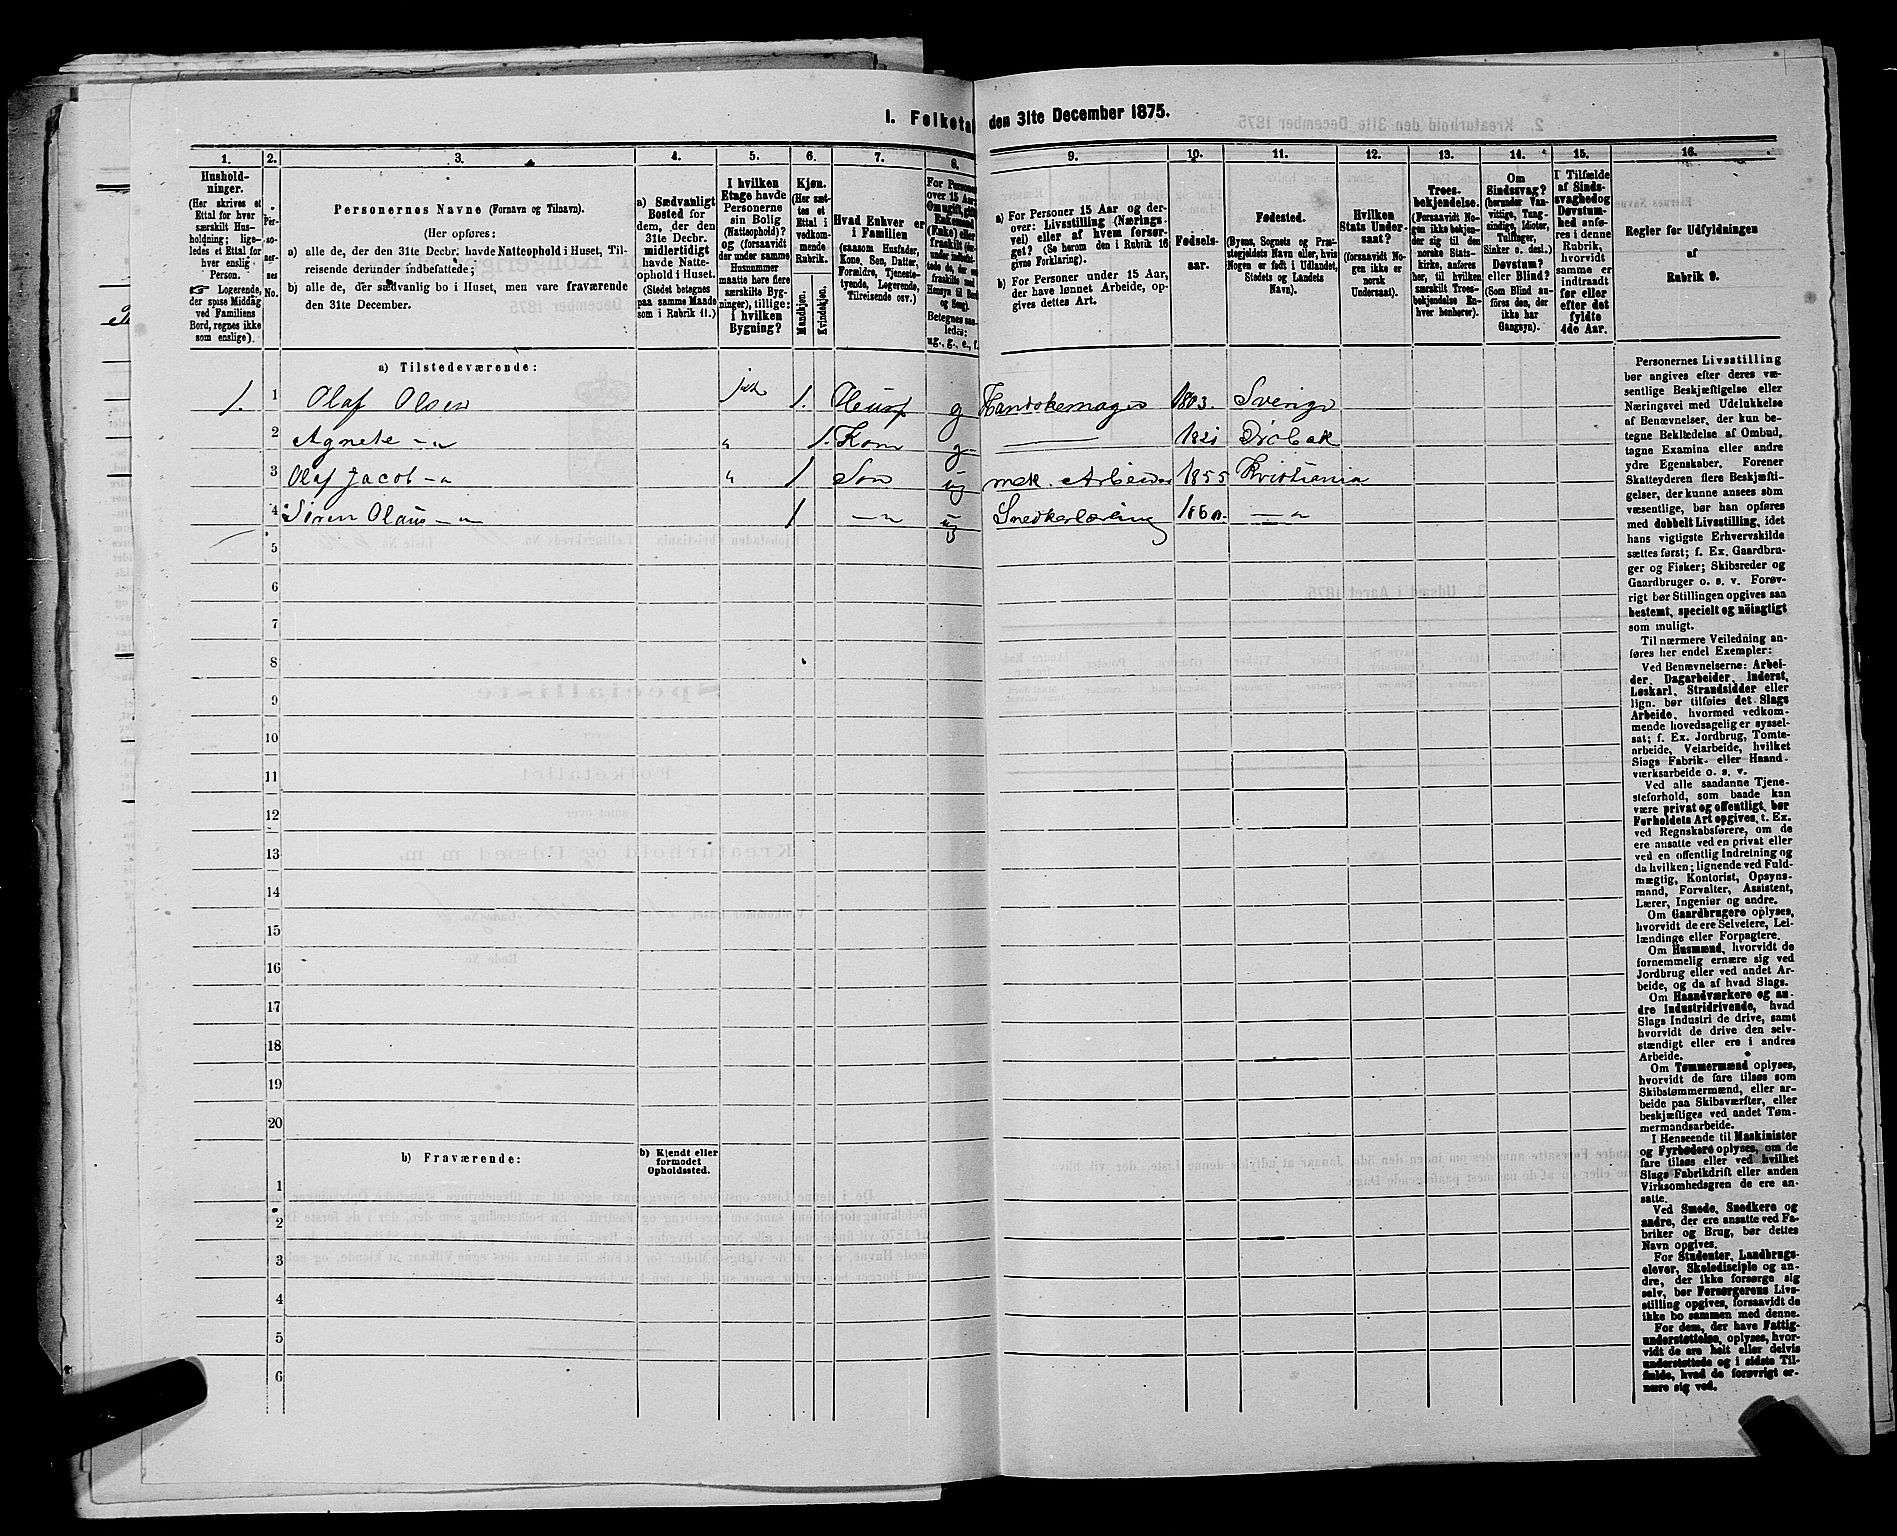 1. Folketal den 31te December 1875.
1. 2. 3. 4. 5. 6. 7. 8. 9. 10. 11. 12. 13. 14. 15. 16.
Husholdninger.
(Her skrives et
Ettal for hver
særskilt Husholdning; ligeledes et Ettal for
hver enslig
Person.
☞ Logerende,
der spise Middag
ved Familiens
Bord, regnes ikke
som enslige).
Personernes No.
Personernes Navne (Fornavn og Tilnavn).
(Her opføres:
a) alle de, der den 31te Decbr. havde Natteophold i Huset, Tilreisende derunder indbefattede;
b) alle de, der sædvanlig bo i Huset, men vare fraværende
den 31te December.
a) Sædvanligt
Bosted for
dem, der den
31te Decbr.
midlertidigt
havde Natteophold i Huset.
(Stedet betegnes
paa samme Maade
som i Rubrik 11.)
I hvilken
Etage havde
Personerne
sin Bolig
(Natteophold)?
og (forsaavidt
der under samme
Husnummer
maatte høre flere
særskilte Bygninger), tillige:
i hvilken
Bygning?
Kjøn.
(Her sættes et
Ettal i
vedkommende
Rubrik.
Mandkjøn.
Kvindekjøn.
Hvad Enhver er
i Familien
(saasom Husfader,
Kone, Søn, Datter,
Forældre, Tjenestetyende, Logerende,
Tilreisende osv.)
For Personer
over 15 Aar:
Betegnes saaledes:
ug., g., e., f.
a) For Personer 15 Aar og derover: Livsstilling (Næringsvei) eller af hvem forsørget? (Se herom den i Rubrik 16
givne Forklaring).
b) For Personer under 15 Aar,
der have lønnet Arbeide, opgives dettes Art.
Fødselsaar.
Fødested.
(Byens, Sognets og Præstegjeldets Navn eller, hvis
Nogen er født i Udlandet,
Stedets og Landets
Navn).
Hvilken
Stats Undersaat?
(forsaavidt Nogen ikke er
norsk
Undersaat).
Troesbekjendelse.
(Forsaavidt Nogen ikke bekjender sig til den
norske Statskirke, anføres
her, til hvilken
særskilt Troesbekjendelse Enhver henhører).
Om
Sindssvag?
(herunder Vanvittige, Tungsindige, Idioter,
Tullinger,
Sinker o. desl.).
Døvstum?
eller Blind?
(Som Blind anføres den, der
ikke har
Gangsyn).
I Tilfælde
af Sindssvaghed og
Døvstumhed anføres i denne
Rubrik,
hvorvidt
samme er
indtraadt
før eller
efter det
fyldte
4de Aar.
Regler for Udfyldningen
af
Rubrik 9.
a) Tilstedeværende:
1. 1 Olaf Olsen 1. g Handskemager 1803. Sverige
2 Agnete —„ „ 1. Kone g — 1821 Drøbak
3 Olaf Jacob —„ „ 1 Søn ug mek. Arbeider 1855 Kristiania
4 Søren Olaus —„ 1 —„ ug Snedkerlærling 1860. —„
5
6
7
8
9
10
11
12
13
14
15
16
17
18
19
20
b) Fraværende:
b) Kjendt eller
formodet
Opholdssted.
1
2
3
4
5
6
Personernes Livsstilling
bør angives efter deres væsentlige Beskjæftigelse eller
Næringsvei med Udelukkelse
af Benævnelser, der kun betegne Beklædelse af Ombud,
tagne Examina eller andre
ydre Egenskaber. Forener
Skatteyderen flere Beskjæftigelser, der kunne ansees som
væsentlige, bør han opføres
med dobbelt Livsstilling, idet
hans vigtigste Erhvervskilde
sættes først; f. Ex. Gaardbruger og Fisker; Skibsreder og
Gaardbruger o. s. v. Forøvrigt bør Stillingen opgives saa
bestemt, specielt og nöiagtigt
som muligt.
Til nærmere Veiledning anføres her endel Exempler:
Ved Benævnelserne: Arbeider, Dagarbeider, Inderst,
Løskarl, Strandsidder eller
lign. bør tilføies det Slags
Arbeide, hvormed vedkommende hovedsagelig er sysselsat; f. Ex. Jordbrug, Tomtearbeide, Veiarbeide, hvilket
Slags Fabrik- eller Haandværksarbeide o. s. v.
Ved alle saadanne Tjenesteforhold, som baade kan
være privat og offentligt, bør
Forholdets Art opgives, t. Ex.
ved Regnskabsførere, om de
ere ansatte ved en privat eller
ved en offentlig Indretning og
da hvilken; lignende ved Fuldmægtig, Kontorist, Opsynsmand, Forvalter, Assistent,
Lærer, Ingeniør og andre.
Om Gaardbrugere oplyses,
hvorvidt de ere Selveiere, Leilændinge eller Forpagtere.
Om Husmænd, hvorvidt de
fornemmelig ernære sig ved
Jordbrug eller ved andet Arbeide, og da af hvad Slags.
Om Haandværkere og andre Industridrivende, hvad
Slags Industri de drive, samt
hvorvidt de drive den selvstændigt eller ere i andres
Arbeide.
Om Tømmermænd oplyses,
hvorvidt de fare tilsøs som
Skibstømmermænd, eller arbeide paa Skibsværfter, eller
beskjæftiges ved andet Tømmermandsarbeide.
I Henseende til Maskinister
og Fyrbødere oplyses, om de
fare tilsøs eller ved hvilket
Slags Fabrikdrift eller anden
Virksomhedsgren de ere ansatte.
Ved Smede, Snedkere og
andre, der ere ansatte ved Fabriker og Brug, bør dettes
Navn opgives.
For Studenter, Landbrugselever, Skoledisciple og andre, der ikke forsørge sig
selv, bør Forsørgerens Livsstilling opgives, forsaavidt de
ikke bo sammen med denne.
For dem, der have Fattigunderstøttelse, oplyses, hvorvidt de ere helt eller delvis
understøttede og i sidste Tilfælde, hvad de forøvrigt ernære sig ved.